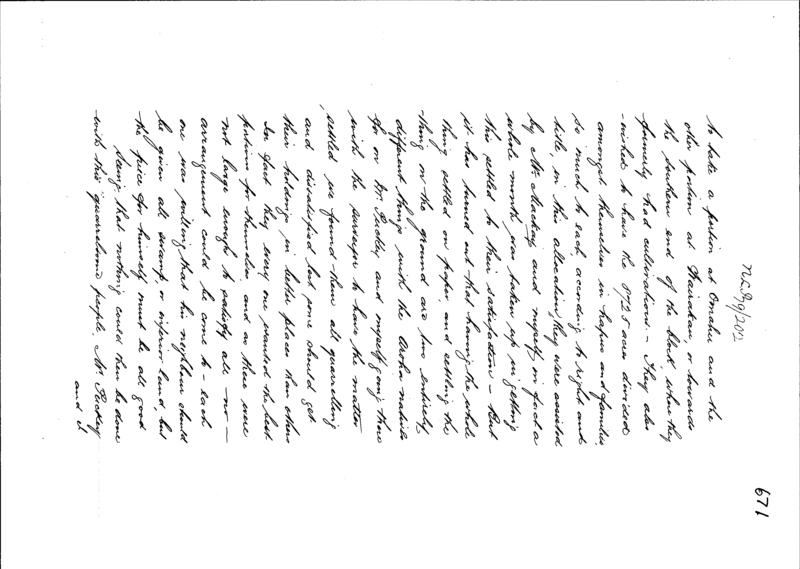 671
N.L.P. 9/20
to take a portion at Omahu and the
other portion at Wairakau, or towards
the southern end of the block, where they
formerly had cultivations - They also
wished to have the 5725 acres divided
amongst themselves in hapus and families
so much to each, according to right and
title, in this allocation they were assisted
by Mr. Mackay and myself, in fact a
whole month was taken up in getting
this settled to their satisfaction - But
it has turned out that having the whole
thing settled on paper and settling the
thing on the ground are two entirely
different things with the Aroha natives
for on Mr. Puckey and myself going there
with the surveyor to have the matter
settled we found them all quarrelling
and dissatisfied lest some should get
their holdings in better places than others
In fact they every one wanted the best
portions for themselves and as there were
not large enough to satisfy all - no -
arrangement could be come to - each
one was willing that his neighbour should
be given all swamp or inferior land, but
the piece for himself must be all good
Seeing that nothing could then be done
with this quarrelsome people, Mr. Puckey
and I